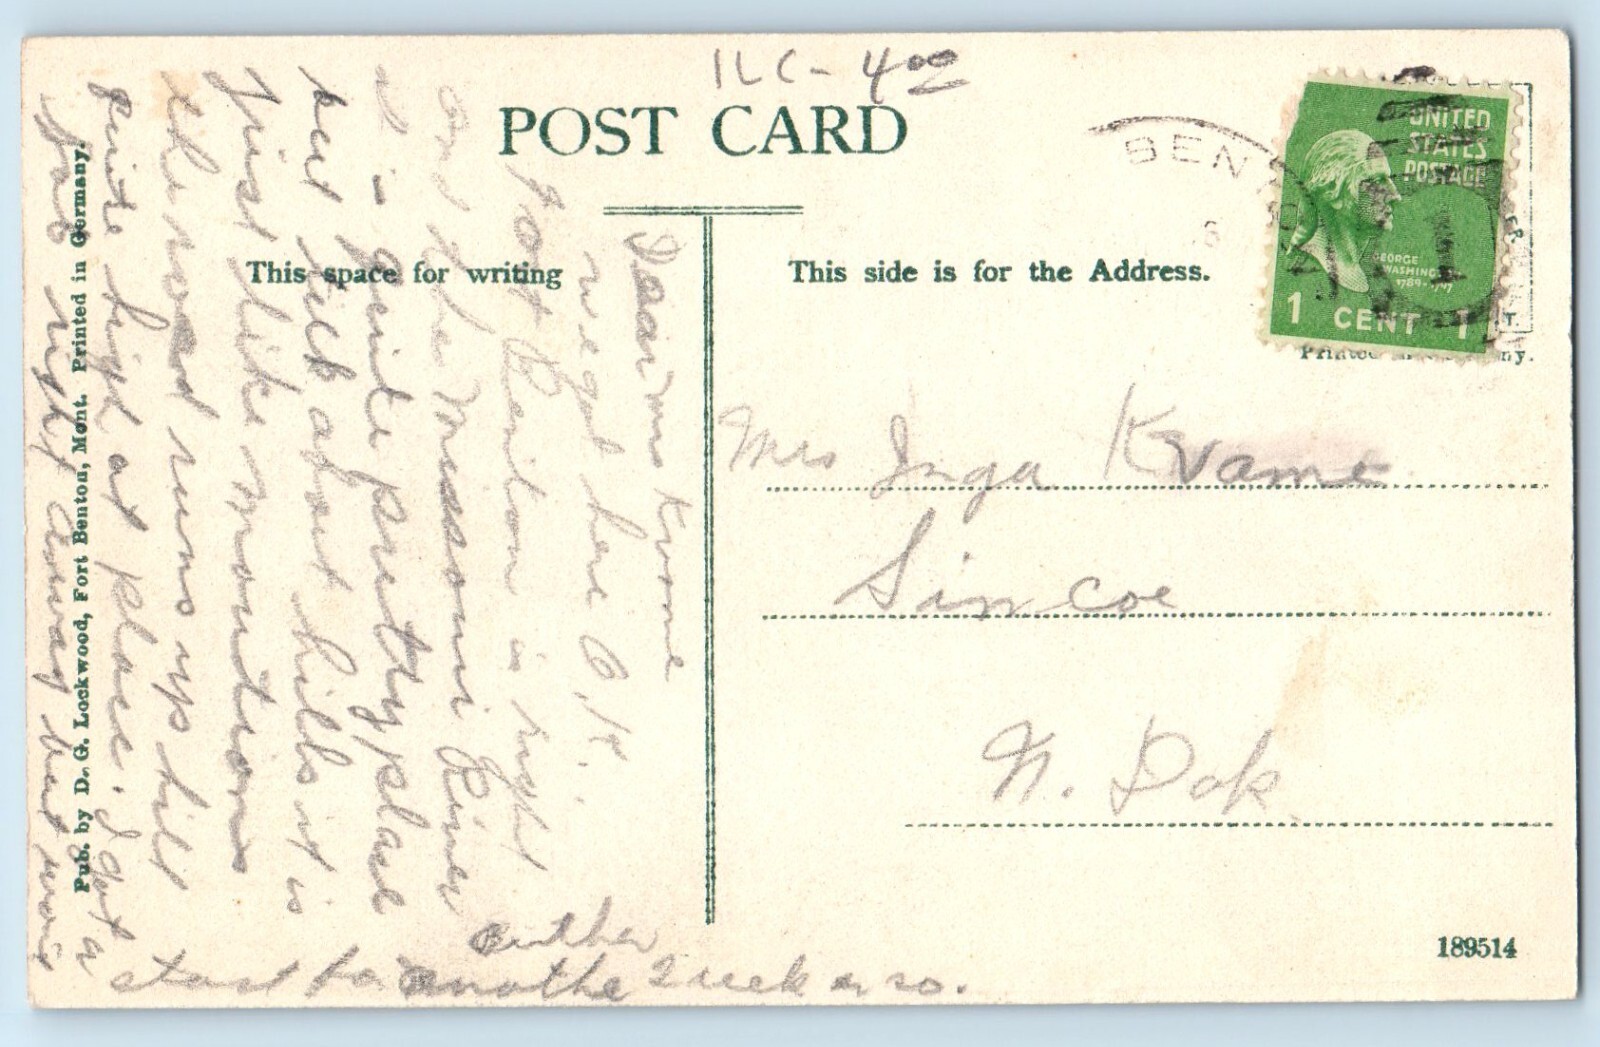 1LC - 4 00
POST CARD
BEN
This space for writing
This side is for the Address.
UNITED
STATES
POSTAGE
GEORGE
WASHING
1789-1797
1 CENT 1
T.
Printed in ny.
Mrs Inga Kvame
Simcoe
N. Dak
189514
Pub. by D. G. Lockwood, Fort Benton, Mont. Printed in Germany.
Dear Mrs Kvame
we got here O.K.
Fort Benton is right
on the Missouri River
it is quite pretty place
but tell about hills it is
just like mountions
the road runs up hill
quite high at place. I got a
job right away but
start for another week or so.